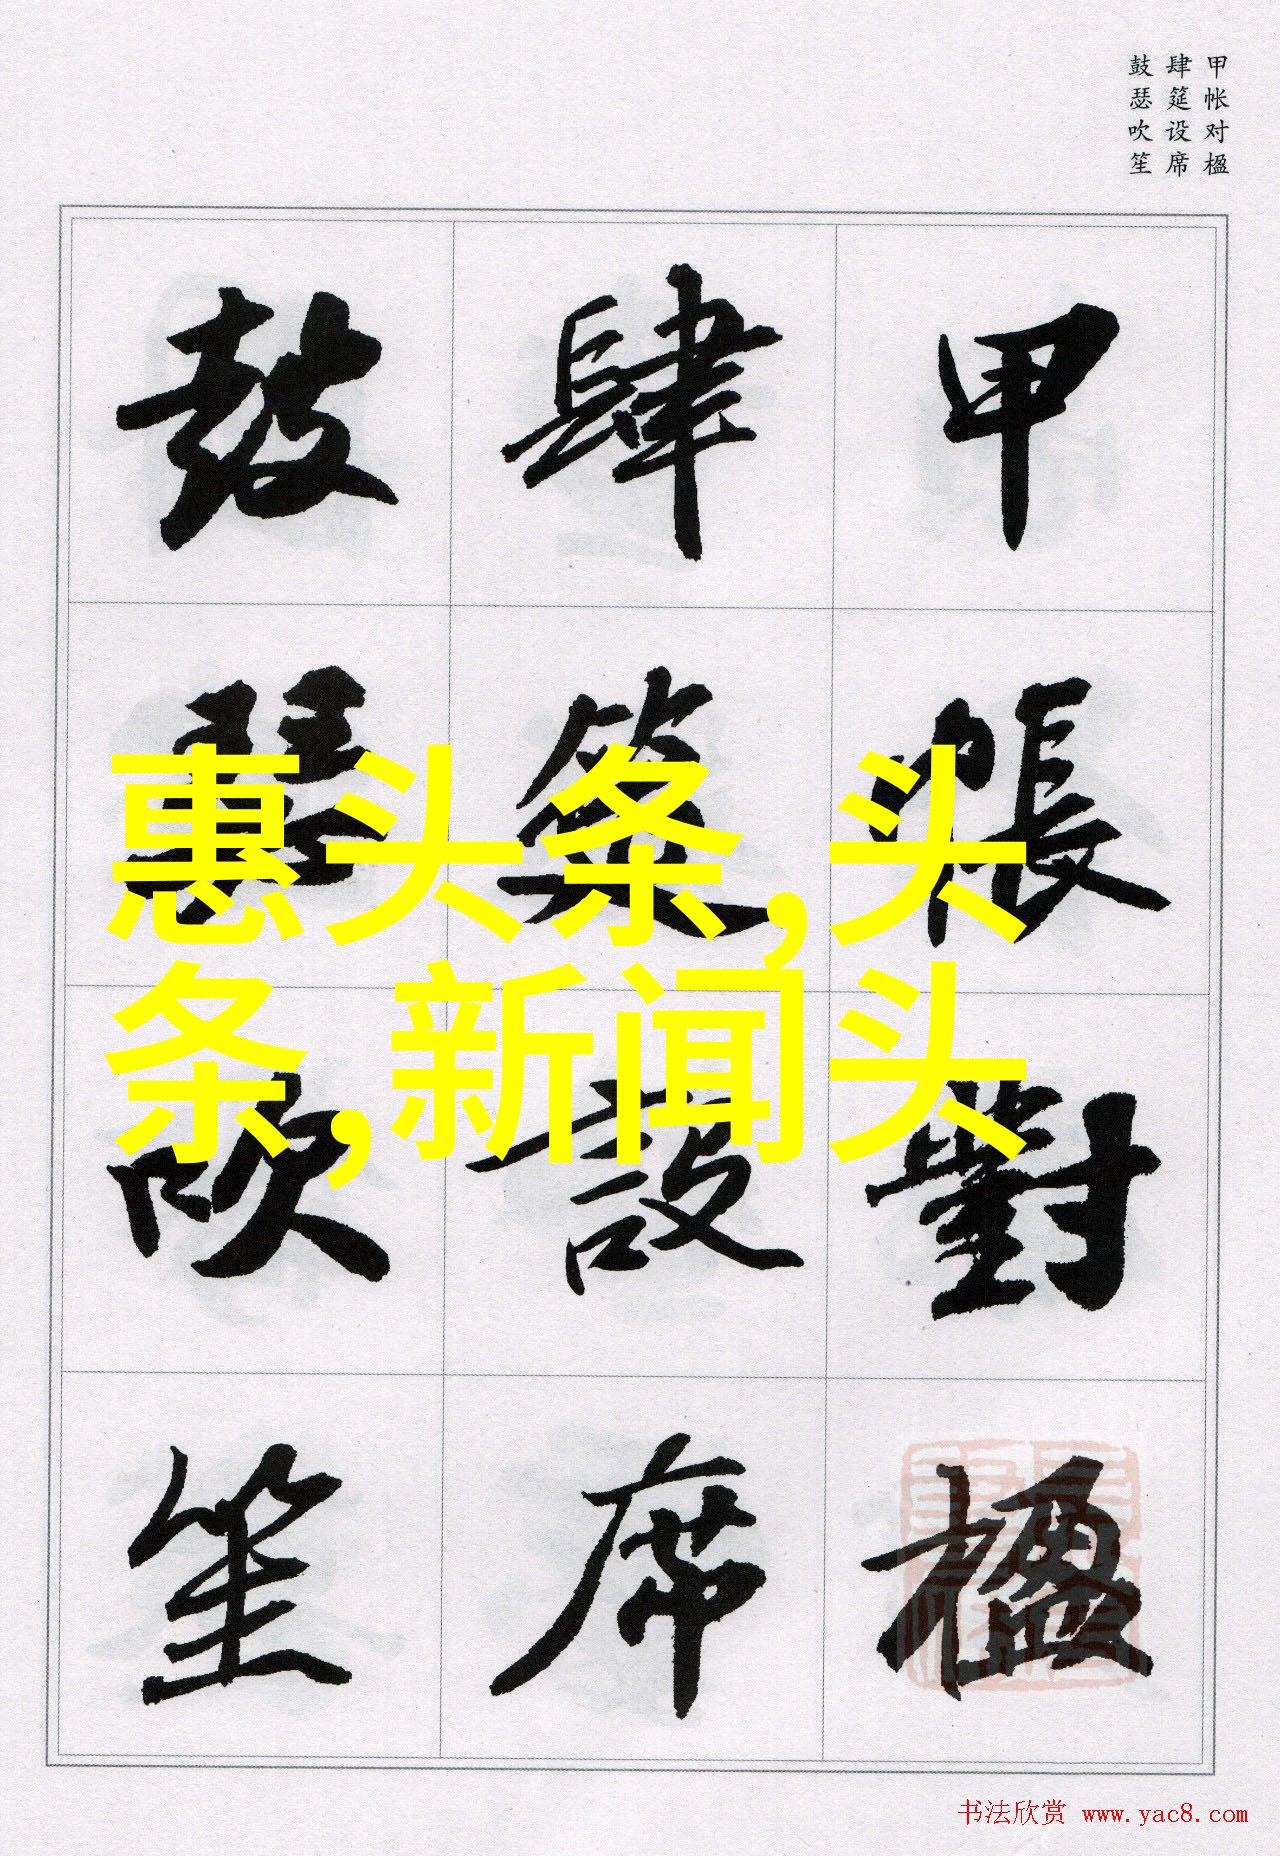 甲帐对楹
肆筵设席
鼓瑟吹笙
甲帳對楹
肆筵設席
鼓瑟吹笙
惠头条,头
条,新闻头
书法欣赏 www.yac8.com